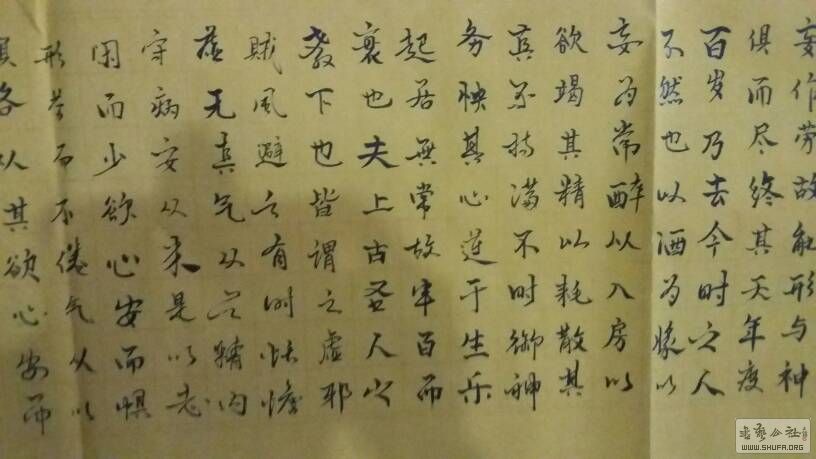 妄作劳故能形与神
俱而尽终其天年度
百岁乃去今时之人
不然也以酒为浆以
妄为常醉以入房以
欲竭其精以耗散其
真不持满不时御神
务快其心逆于生乐
起居無常故半百而
衰也夫上古圣人之
教下也皆谓之虚邪
贼风避之有时恬憺
虚无真气从之精内
守病安从来是以志
闲而少欲心安而惧
形劳而不倦气从以
各从其欲心安而
书艺公社
WWW.SHUFA.ORG